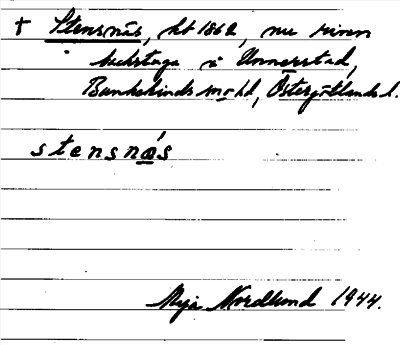 † Stensnäs, kt 1862, nu riven
backstuga å Unnerstad,
Bankekinds sn o hd, Östergötlands l.
stensnäs
Maja Nordlund 1944.